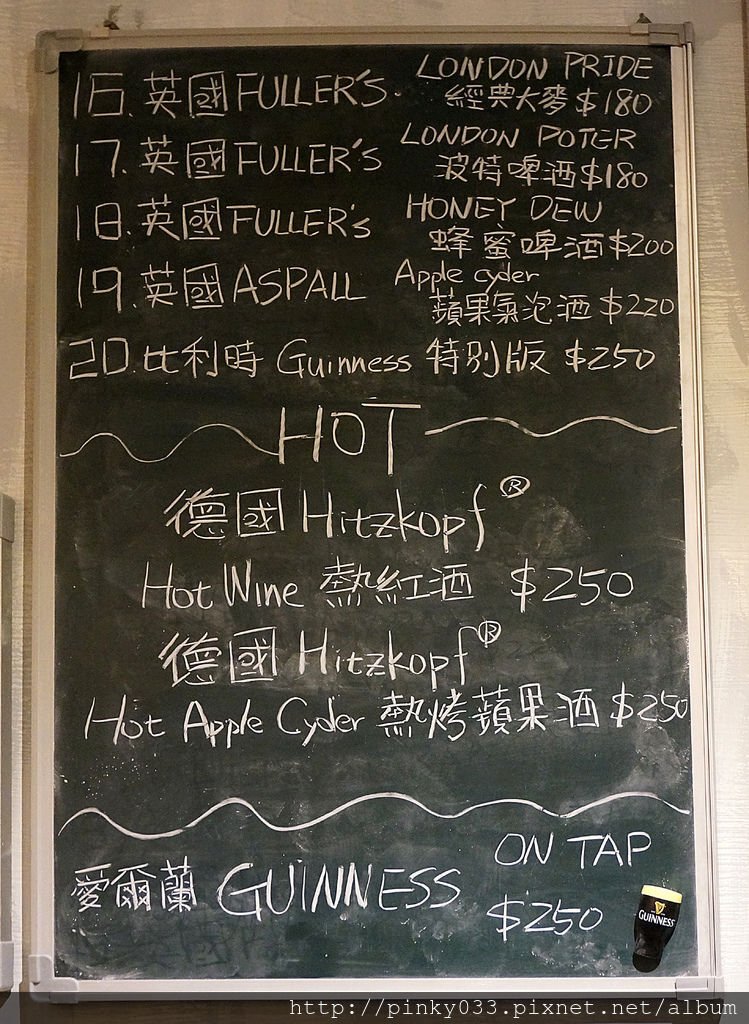 16. 英國 FULLER'S LONDON PRIDE
經典大麥 $180
17. 英國 FULLER'S LONDON POTER
波特啤酒 $180
18. 英國 FULLER'S HONEY DEW
蜂蜜啤酒 $200
19. 英國 ASPALL Apple cyder
蘋果氣泡酒 $220
20. 比利時 Guinness 特別版 $250
HOT
德國 Hitzkopf ®
Hot Wine 熱紅酒 $250
德國 Hitzkopf ®
Hot Apple Cyder 熱烤蘋果酒 $250
ON TAP
愛爾蘭 GUINNESS $250
GUINNESS
http://pinky033.pixnet.net/album